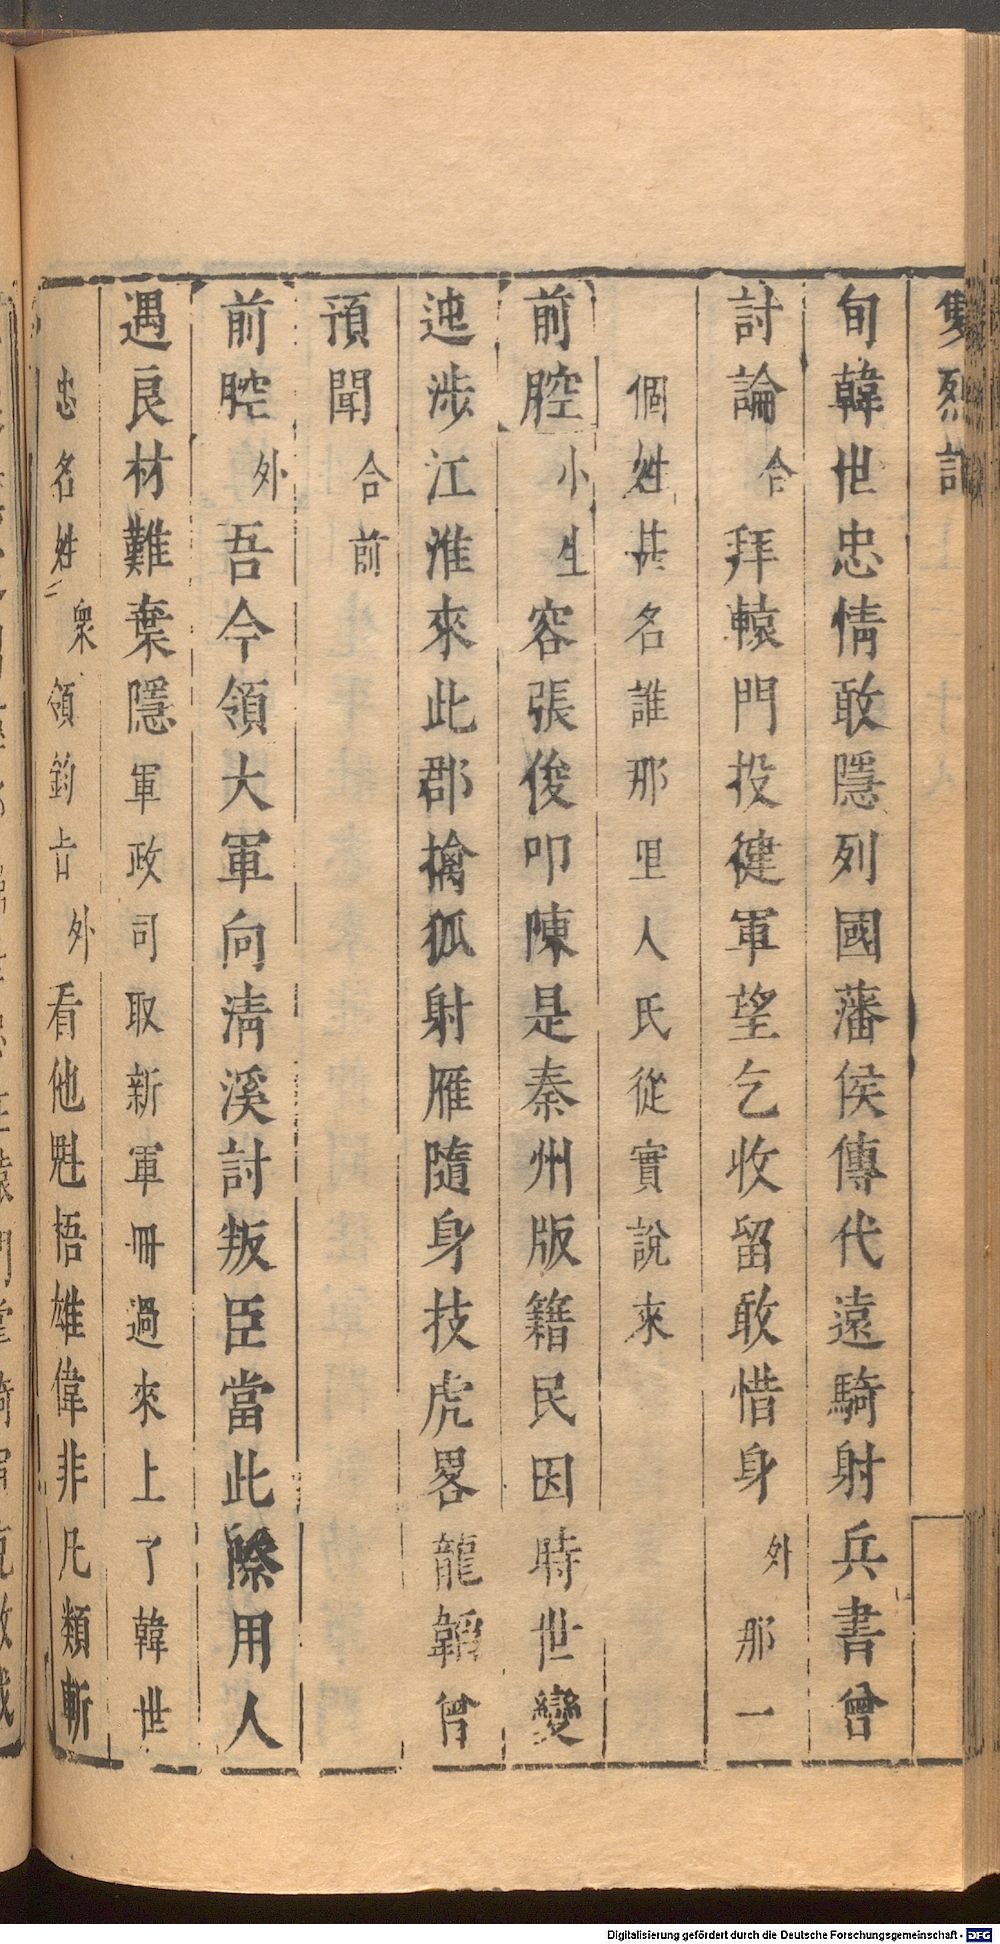 雙烈記
旬韓世忠情敢隱列國藩侯傳代遠騎射兵書曾
討論合拜轅門投徤軍望乞收留敢惜身外那一
個姓甚名誰那里人氏從實說來
前腔小生容張俊叩陳是秦州版籍民因時世變
迍涉江淮來此郡擒狐射雁隨身技虎畧龍韜曾
預聞合前
前腔外吾今領大軍向清溪討叛臣當此際用人
遇良材難棄隱軍政司取新軍冊過來上了韓世
忠名姓衆領鈞旨外看他魁梧雄偉非凡類斬
Digitalisierung gefördert durch die Deutsche Forschungsgemeinschaft - DFG